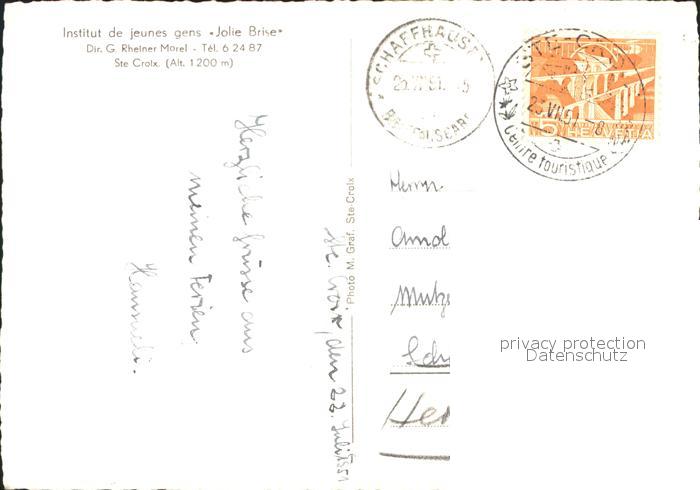 Institut de jeunes gens «Jolie Brise»
Dir. G. Rheiner Morel - Tél. 6 24 87
Ste Croix. (Alt. 1200 m)
Herzliche Grüsse aus
meinen Ferien
Hannedi.
Ste. Croix, den 22. Juli 1951
Photo M. Graf. Ste-Croix
SCHAFFHAUSEN
STE-CROIX
23.VII.51.-8
Centre touristique
5 HELVETIA
Herrn
Arnol
Mutze
Sch
Her
privacy protection
Datenschutz